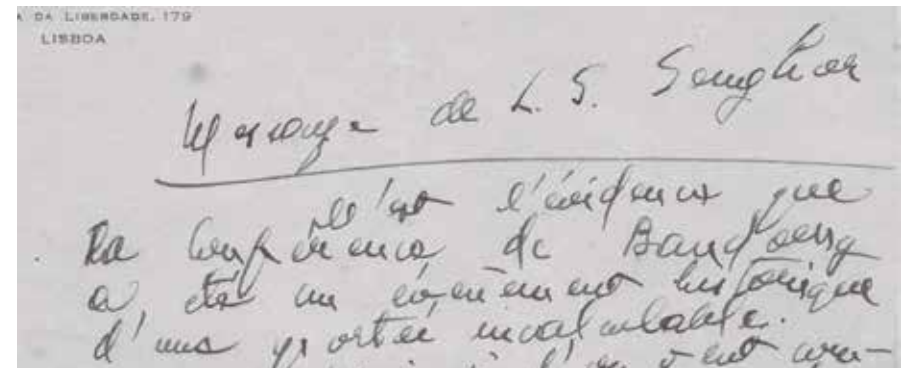 A DA LIBERDADE, 179
LISBOA
Message de L. S. Senghor
C'est l'évidence que
la Conférence de Bandoeng
a été un événement historique
d'une portée incalculable.
l'on veut